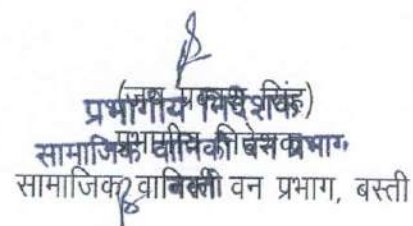 (जय प्रकाश सिंह)
प्रभागीय निदेशक
प्रभागीय निदेशक
सामाजिक वानिकी वन प्रभाग,
सामाजिक वानिकी वन प्रभाग, बस्ती
बस्ती